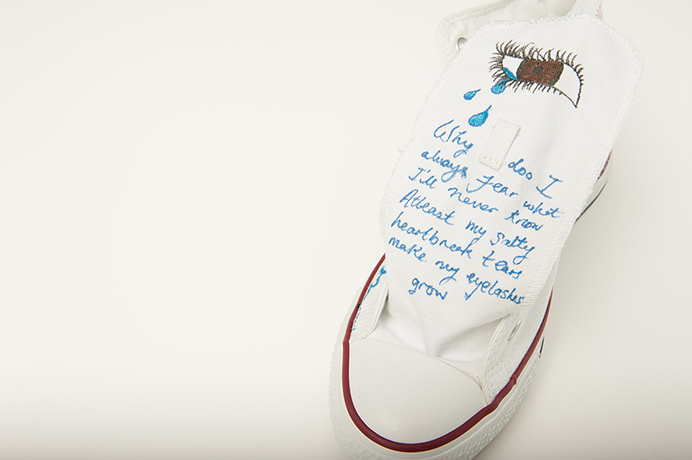 Why doo I
always fear what
I'll never know
Atleast my salty
heartbreak tears
make my eyelashes
grow